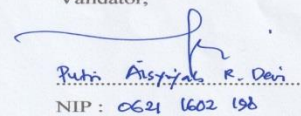 Validator,
Putri Aisyiyah R. Devi
NIP : 0621 1602 198